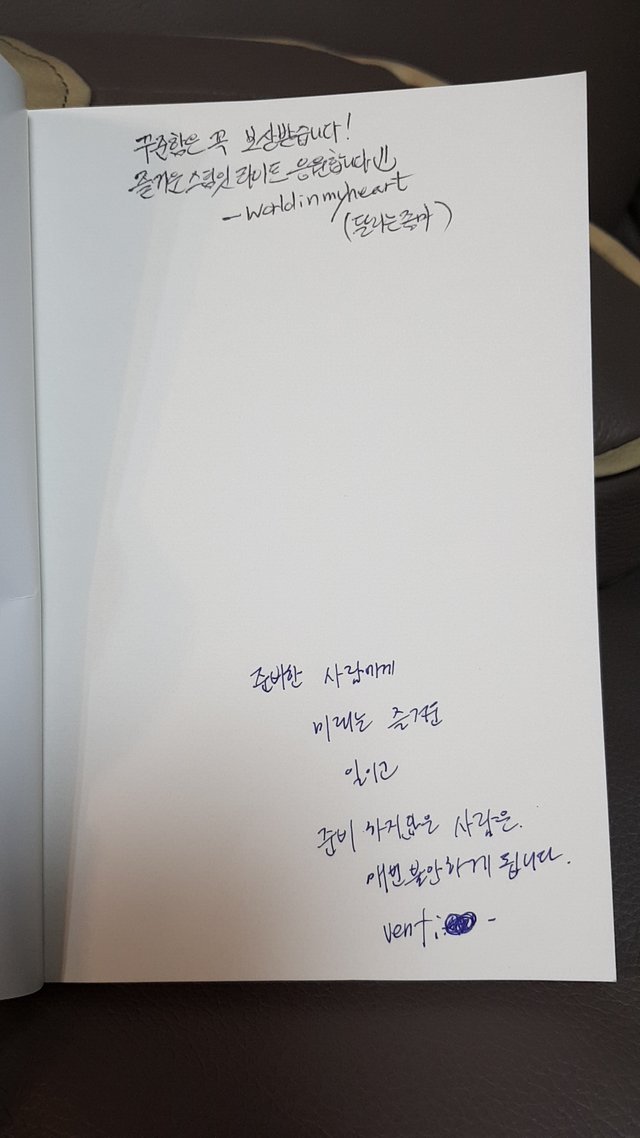 꾸준함은 꼭 보상받습니다!
즐거운 스팀잇 라이프 응원합니다
- worldinmyheart
(달리는 중마)
준비한 사람에게
미래는 즐거운
일이고
준비 하지않은 사람은.
매번 불안하게 됩니다.
venti